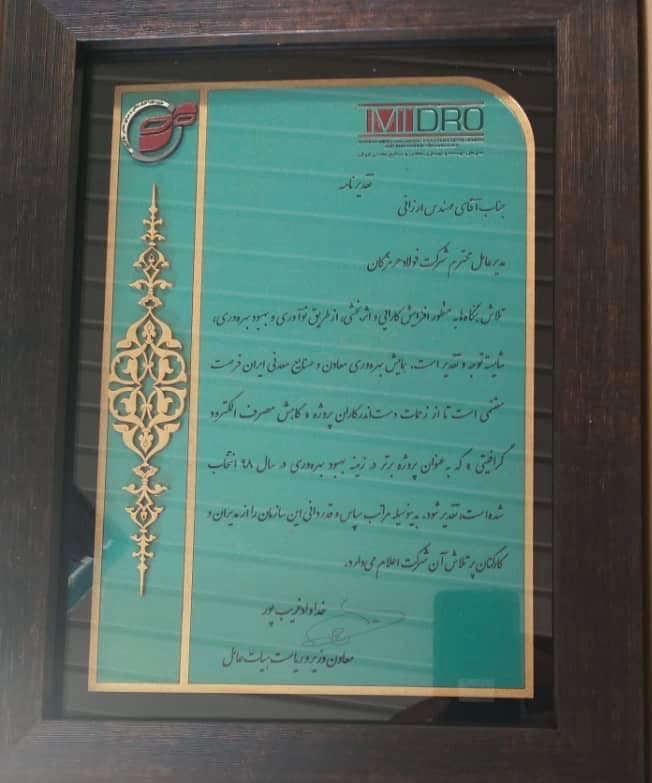 IMIDRO
تقدیرنامه
جناب آقای مهندس ارزانی
مدیرعامل محترم شرکت فولاد هرمزگان
تلاش بنگاه‌ها به منظور افزایش کارایی و اثربخشی، از طریق نوآوری و بهبود بهره‌وری،
شایسته توجه و تقدیر است. همایش بهره‌وری معادن و صنایع معدنی ایران فرصت
مغتنمی است تا از زحمات دست‌اندرکاران پروژه «کاهش مصرف الکترود
گرافیتی» که به عنوان پروژه برتر در زمینه بهبود بهره‌وری در سال ۹۸ انتخاب
شده است، تقدیر شود. بدینوسیله مراتب سپاس و قدردانی این سازمان را از مدیران و
کارکنان پر تلاش آن شرکت اعلام می‌دارد.
خداداد غریب پور
معاون وزیر و ریاست هیات عامل